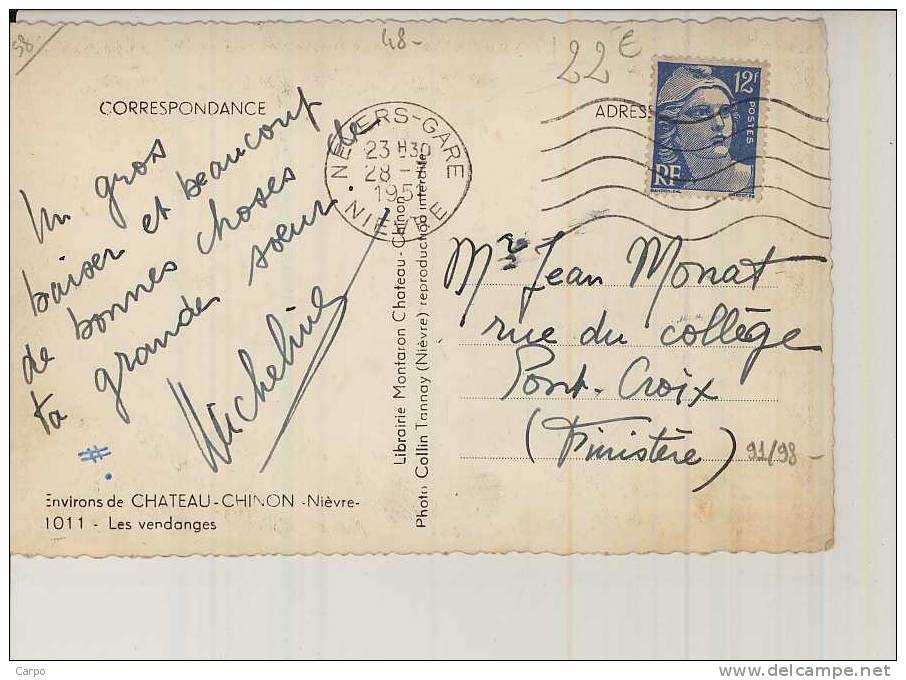 58-
48-
22€
CORRESPONDANCE
ADRESS
12F
POSTES
RF
NEVERS-GARE
23 H30
28 -
195
NIEVRE
Un gros
baiser et beaucoup
de bonnes choses de
ta grande soeur.
Micheline
Mr Jean Monat
rue du collège
Pont-Croix
(Finistère)
91/98-
Librairie Montaron Chateau-Chinon
Photo Collin Tannay (Nièvre) reproduction interdite
#.
Environs de CHATEAU-CHINON -Nièvre-
1011 - Les vendanges
Carpo
www.delcampe.net